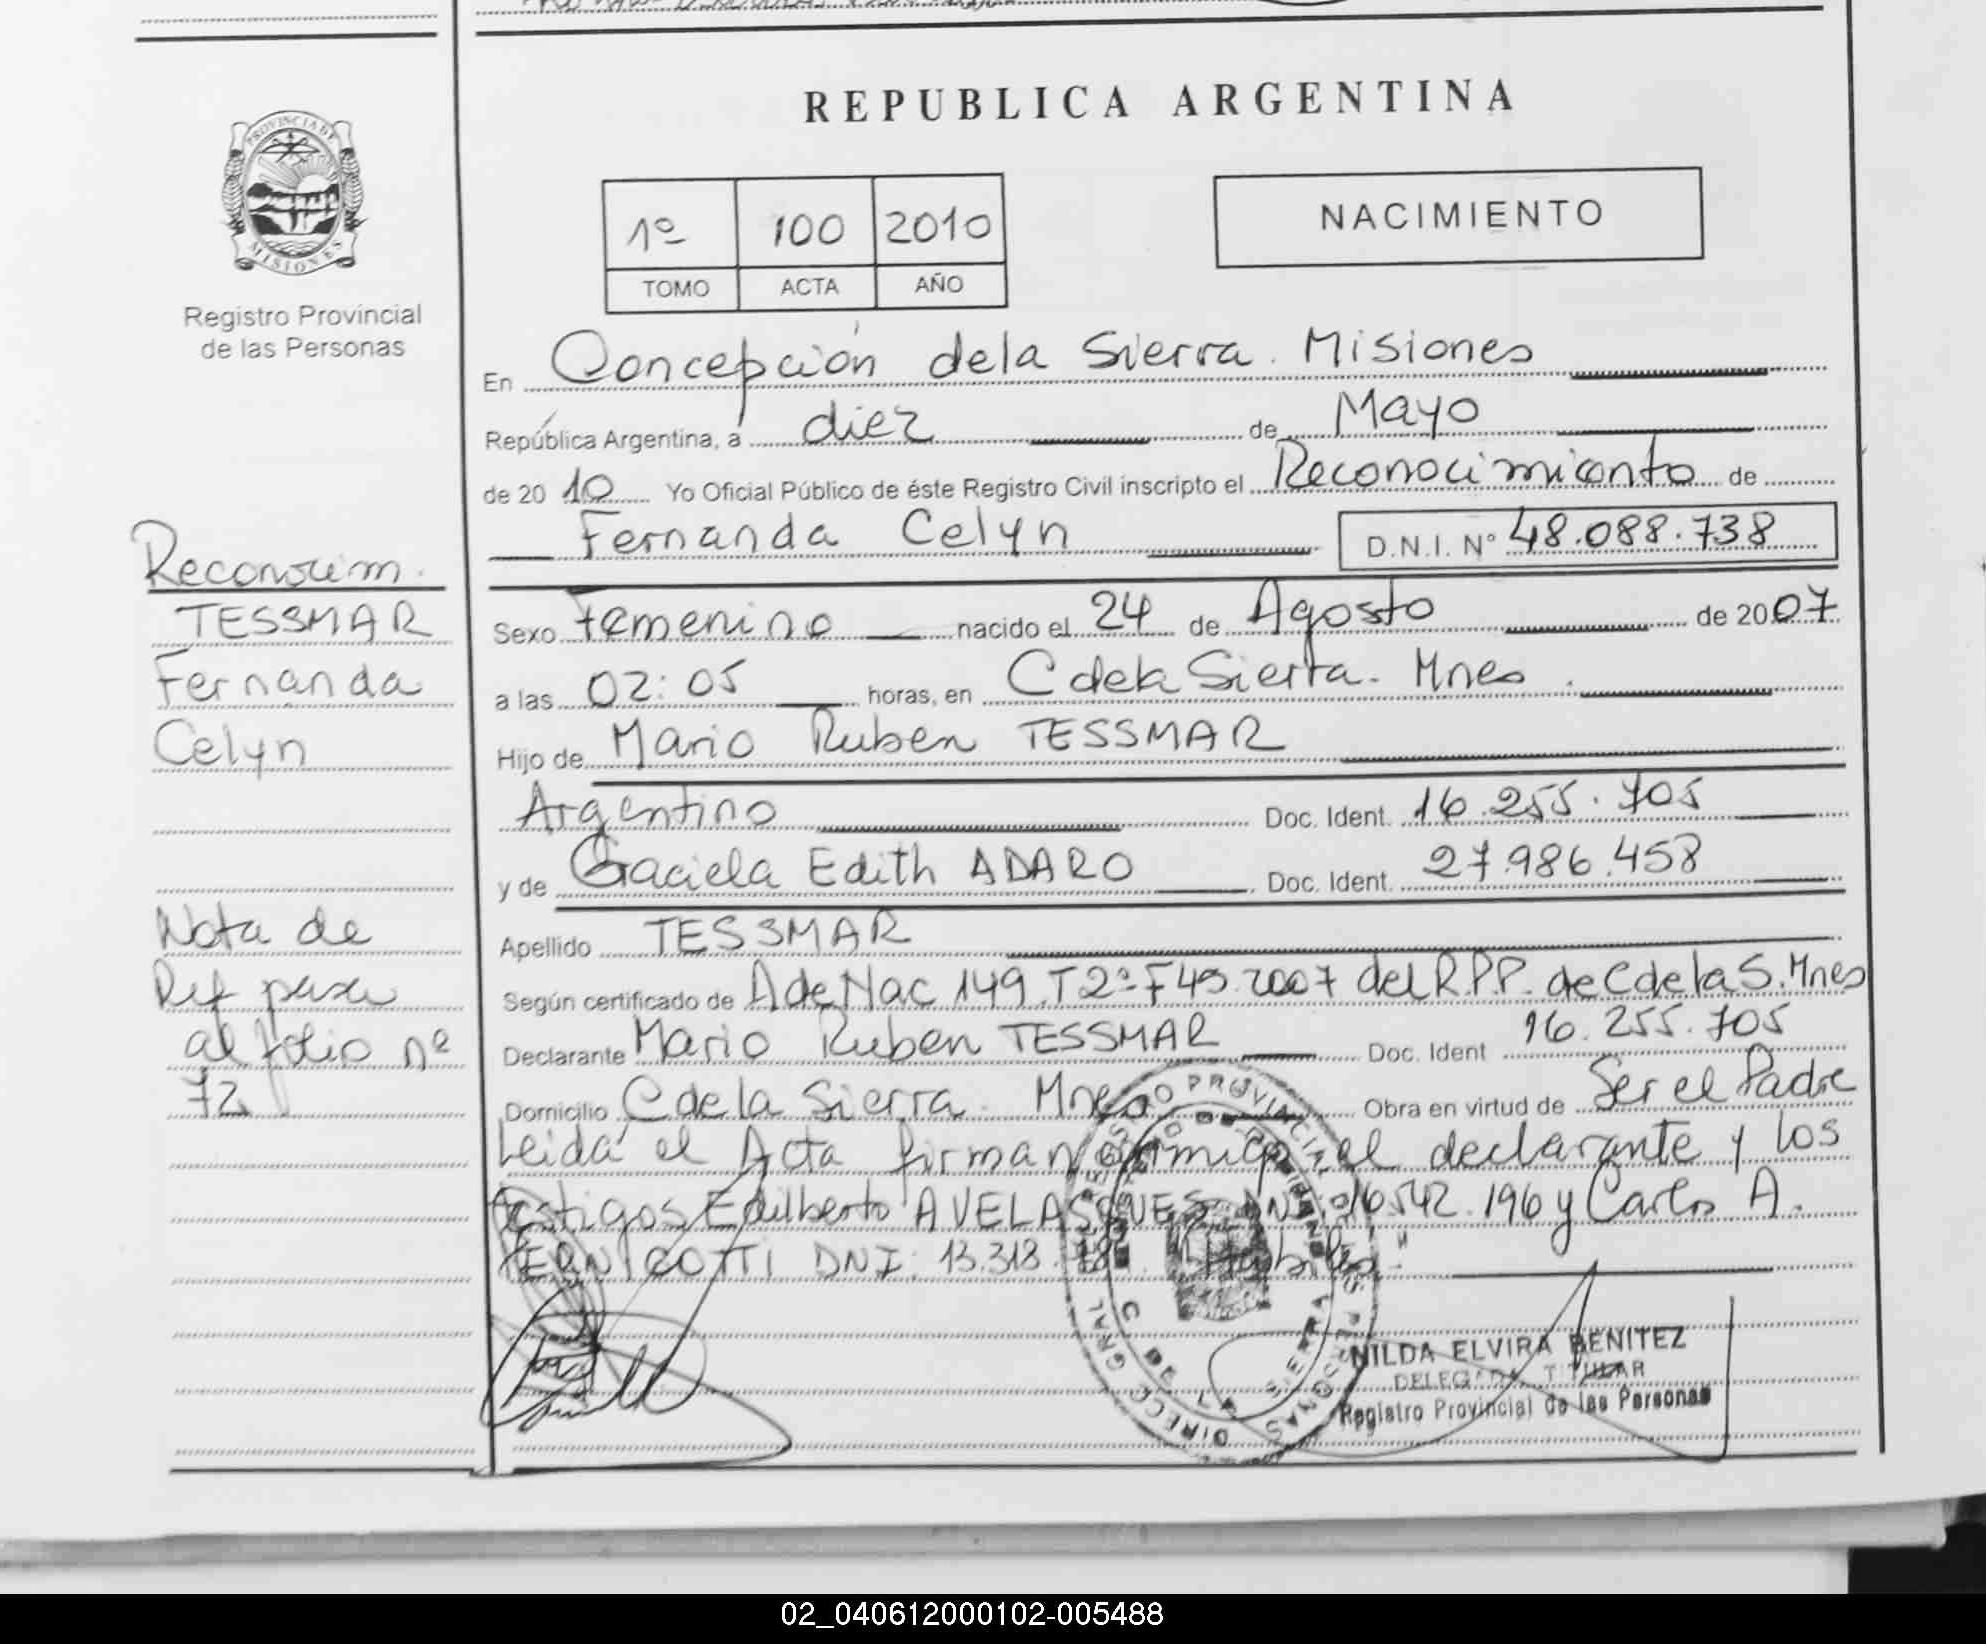 REPUBLICA ARGENTINA
PROVINCIA DE
MISIONES
Registro Provincial
de las Personas
1º 100 2010
TOMO ACTA AÑO
NACIMIENTO
En Concepción dela Sierra. Misiones
República Argentina, a diez de Mayo
de 20 10 Yo Oficial Público de éste Registro Civil inscripto el Reconocimiento de
Fernanda Celyn D.N.I. Nº 48.088.738
Sexo Femenino nacido el 24 de Agosto de 20 07
a las 02:05 horas, en C dela Sierra. Mnes.
Hijo de Mario Ruben TESSMAR
Argentino Doc. Ident. 16.255.705
y de Graciela Edith ADARO Doc. Ident. 27.986.458
Apellido TESSMAR
Según certificado de A de Nac 149 T2º F49. 2007 del R.P.P. de C de la S. Mnes
Declarante Mario Ruben TESSMAR Doc. Ident 16.255.705
Domicilio C de la Sierra. Mnes Obra en virtud de Ser el Padre
Leida el Acta firman conmigo el declarante y los
testigos Edilberto A VELASQUES DNI. 16.542.196 y Carlos A.
DNI: 13.318. "Habiles"
Reconocim.
TESSMAR
Fernanda
Celyn
Nota de
Ref pasa
al folio nº
72
REGISTRO PROVINCIAL DE LAS PERSONAS
DIRECC GRAL
C DE LA SIERRA
NILDA ELVIRA BENITEZ
DELEGADA TITULAR
Registro Provincial de las Personas
02_040612000102-005488